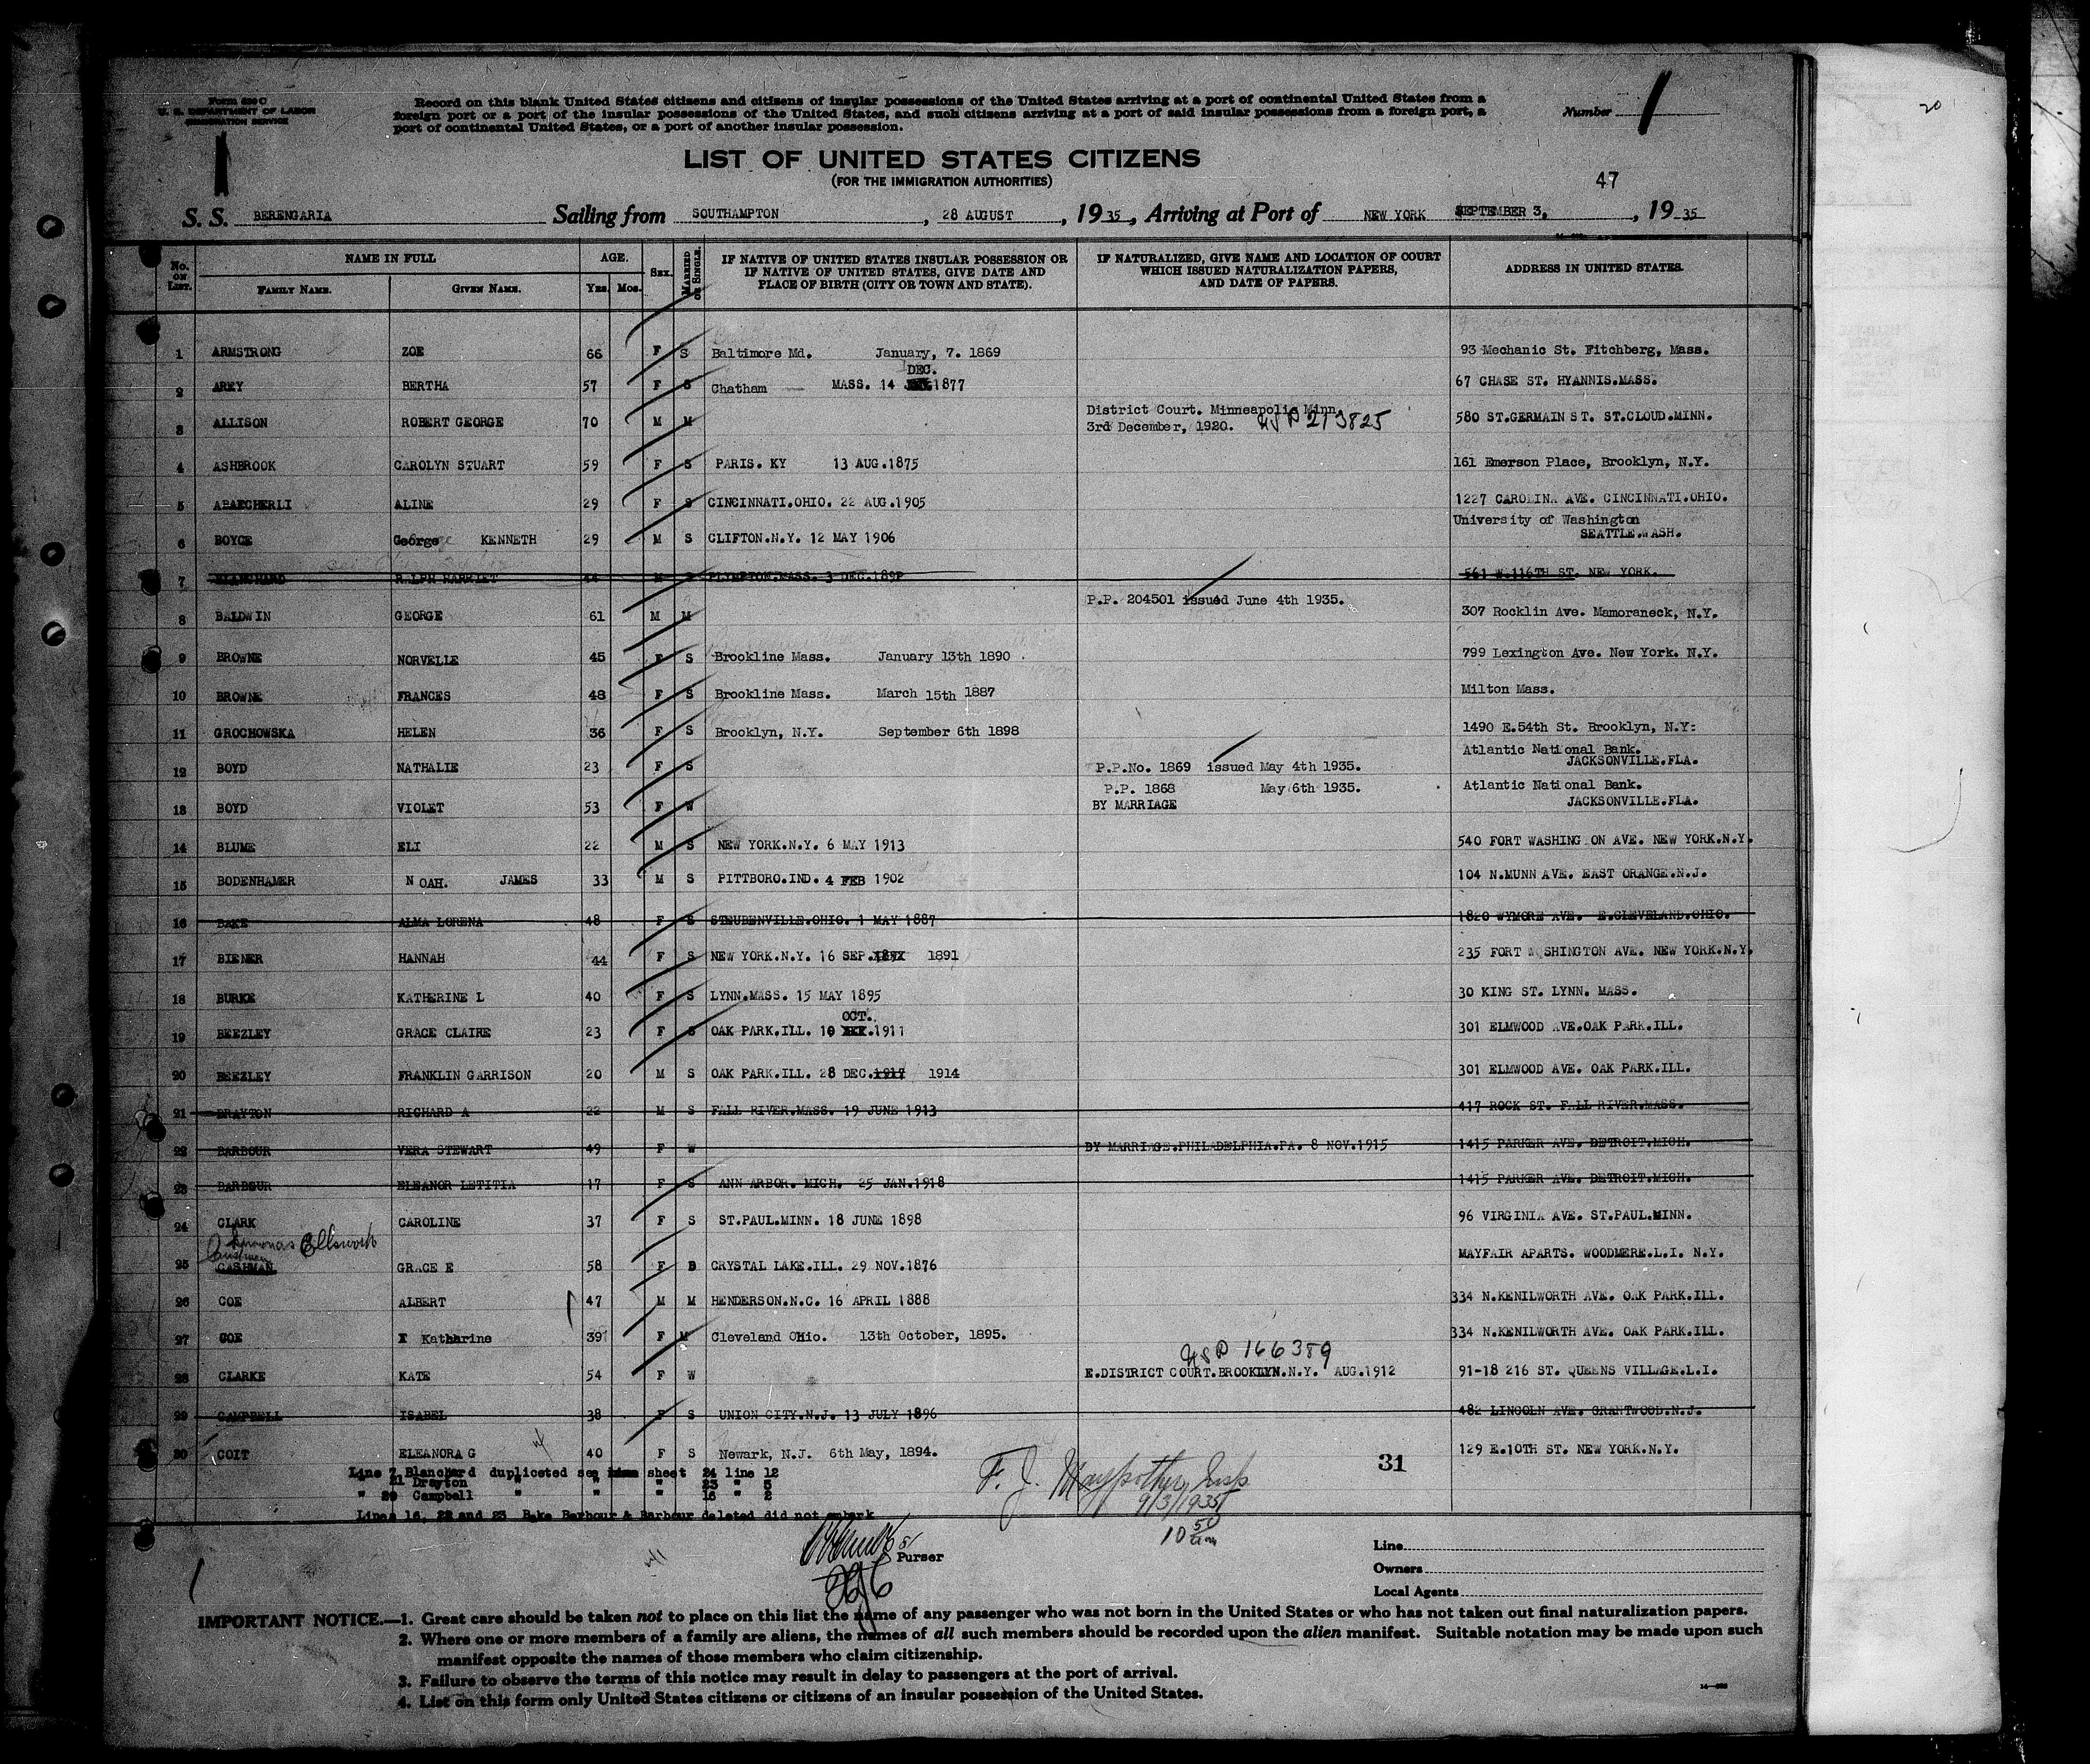 Form 630 C
U. S. DEPARTMENT OF LABOR
IMMIGRATION SERVICE
1
Record on this blank United States citizens and citizens of insular possessions of the United States arriving at a port of continental United States from a
foreign port or a port of the insular possessions of the United States, and such citizens arriving at a port of said insular possessions from a foreign port, a
port of continental United States, or a port of another insular possession.
Number 1
20
LIST OF UNITED STATES CITIZENS
(FOR THE IMMIGRATION AUTHORITIES)
47
S. S. BERENGARIA Sailing from SOUTHAMPTON, 28 AUGUST, 1935, Arriving at Port of NEW YORK SEPTEMBER 3, 1935
No. on List. NAME IN FULL FAMILY NAME. GIVEN NAME. AGE. Yrs. Mos. SEX. MARRIED OR SINGLE. IF NATIVE OF UNITED STATES INSULAR POSSESSION OR IF NATIVE OF UNITED STATES, GIVE DATE AND PLACE OF BIRTH (CITY OR TOWN AND STATE). IF NATURALIZED, GIVE NAME AND LOCATION OF COURT WHICH ISSUED NATURALIZATION PAPERS, AND DATE OF PAPERS. ADDRESS IN UNITED STATES.
1 ARMSTRONG ZOE 66 F S Baltimore Md. January, 7. 1869 93 Mechanic St. Fitchberg, Mass.
2 AREY BERTHA 57 F S Chatham MASS. 14 DEC. 1877 67 CHASE ST. HYANNIS.MASS.
3 ALLISON ROBERT GEORGE 70 M M District Court. Minneapolis Minn. 3rd December, 1920. USP 213825 580 ST.GERMAIN ST. ST.CLOUD.MINN.
4 ASHBROOK CAROLYN STUART 59 F S PARIS. KY 13 AUG.1875 161 Emerson Place, Brooklyn, N.Y.
5 ABAECHERLI ALINE 29 F S CINCINNATI.OHIO. 22 AUG.1905 1227 CAROLINA AVE. CINCINNATI.OHIO.
6 BOYCE George KENNETH 29 M S CLIFTON.N.Y. 12 MAY 1906 University of Washington SEATTLE.WASH.
7 BLANCHARD RALPH HARRIET 44 M S PLYMPTON.MASS. 3 DEC.1890 561 W.116TH ST. NEW YORK.
8 BALDWIN GEORGE 61 M M P.P. 204501 issued June 4th 1935. 307 Rocklin Ave. Mamoraneck, N.Y.
9 BROWNE NORVELLE 45 F S Brookline Mass. January 13th 1890 799 Lexington Ave. New York. N.Y.
10 BROWNE FRANCES 48 F S Brookline Mass. March 15th 1887 Milton Mass.
11 GROCHOWSKA HELEN 36 F S Brooklyn, N.Y. September 6th 1898 1490 E.54th St. Brooklyn, N.Y:
12 BOYD NATHALIE 23 F S P.P.No. 1869 issued May 4th 1935. Atlantic National Bank. JACKSONVILLE.FLA.
13 BOYD VIOLET 53 F W P.P. 1868 May 6th 1935. BY MARRIAGE Atlantic National Bank. JACKSONVILLE.FLA.
14 BLUME ELI 22 M S NEW YORK.N.Y. 6 MAY 1913 540 FORT WASHING ON AVE. NEW YORK.N.Y.
15 BODENHAMER NOAH. JAMES 33 M S PITTBORO.IND. 4 FEB 1902 104 N.MUNN AVE. EAST ORANGE.N.J.
16 BAKE ALMA LORENA 48 F S STEUBENVILLE.OHIO. 1 MAY 1887 1820 WYMORE AVE. E.CLEVELAND.OHIO.
17 BIENER HANNAH 44 F S NEW YORK.N.Y. 16 SEP. 1891 235 FORT WASHINGTON AVE. NEW YORK.N.Y.
18 BURKE KATHERINE L 40 F S LYNN.MASS. 15 MAY 1895 30 KING ST. LYNN. MASS.
19 BEEZLEY GRACE CLAIRE 23 F S OAK PARK.ILL. 10 OCT. 1911 301 ELMWOOD AVE.OAK PARK.ILL.
20 BEEZLEY FRANKLIN GARRISON 20 M S OAK PARK.ILL. 28 DEC.1917 1914 301 ELMWOOD AVE. OAK PARK.ILL.
21 DRAYTON RICHARD A 22 M S FALL RIVER.MASS. 19 JUNE 1913 417 ROCK ST. FALL RIVER.MASS.
22 BARBOUR VERA STEWART 49 F W BY MARRIAGE.PHILADELPHIA.PA. 8 NOV.1915 1415 PARKER AVE. DETROIT.MICH.
23 BARBOUR ELEANOR LETITIA 17 F S ANN ARBOR. MICH. 25 JAN.1918 1415 PARKER AVE. DETROIT.MICH.
24 CLARK CAROLINE 37 F S ST.PAUL.MINN. 18 JUNE 1898 96 VIRGINIA AVE. ST.PAUL.MINN.
Ellsworth
25 CASHMAN GRACE E 58 F D CRYSTAL LAKE.ILL. 29 NOV.1876 MAYFAIR APARTS. WOODMERE.L.I. N.Y.
26 COE ALBERT 47 M M HENDERSON.N.C. 16 APRIL 1888 334 N.KENILWORTH AVE. OAK PARK.ILL.
27 COE Katharine 39 F M Cleveland Ohio. 13th October, 1895. 334 N.KENILWORTH AVE. OAK PARK.ILL.
28 CLARKE KATE 54 F W USP 166389 E.DISTRICT COURT.BROOKLYN.N.Y. AUG.1912 91-18 216 ST. QUEENS VILLAGE.L.I.
29 CAMPBELL ISABEL 38 F S UNION CITY.N.J. 13 JULY 1896 482 LINCOLN AVE. GRANTWOOD.N.J.
30 COIT ELEANORA G 40 F S Newark, N.J. 6th May, 1894. 129 E.10TH ST. NEW YORK.N.Y.
31
Line 7 Blanchard duplicated see sheet 24 line 12
" 21 Drayton " " " 23 " 5
" 29 Campbell " " " 16 " 2
Lines 16, 22 and 23 Bake Barbour & Barbour deleted did not embark
F. J. Maypother, Insp
9/3/1935
10 50 am
Purser
Line
Owners
Local Agents
IMPORTANT NOTICE.—1. Great care should be taken not to place on this list the name of any passenger who was not born in the United States or who has not taken out final naturalization papers.
2. Where one or more members of a family are aliens, the names of all such members should be recorded upon the alien manifest. Suitable notation may be made upon such
manifest opposite the names of those members who claim citizenship.
3. Failure to observe the terms of this notice may result in delay to passengers at the port of arrival.
4. List on this form only United States citizens or citizens of an insular possession of the United States.